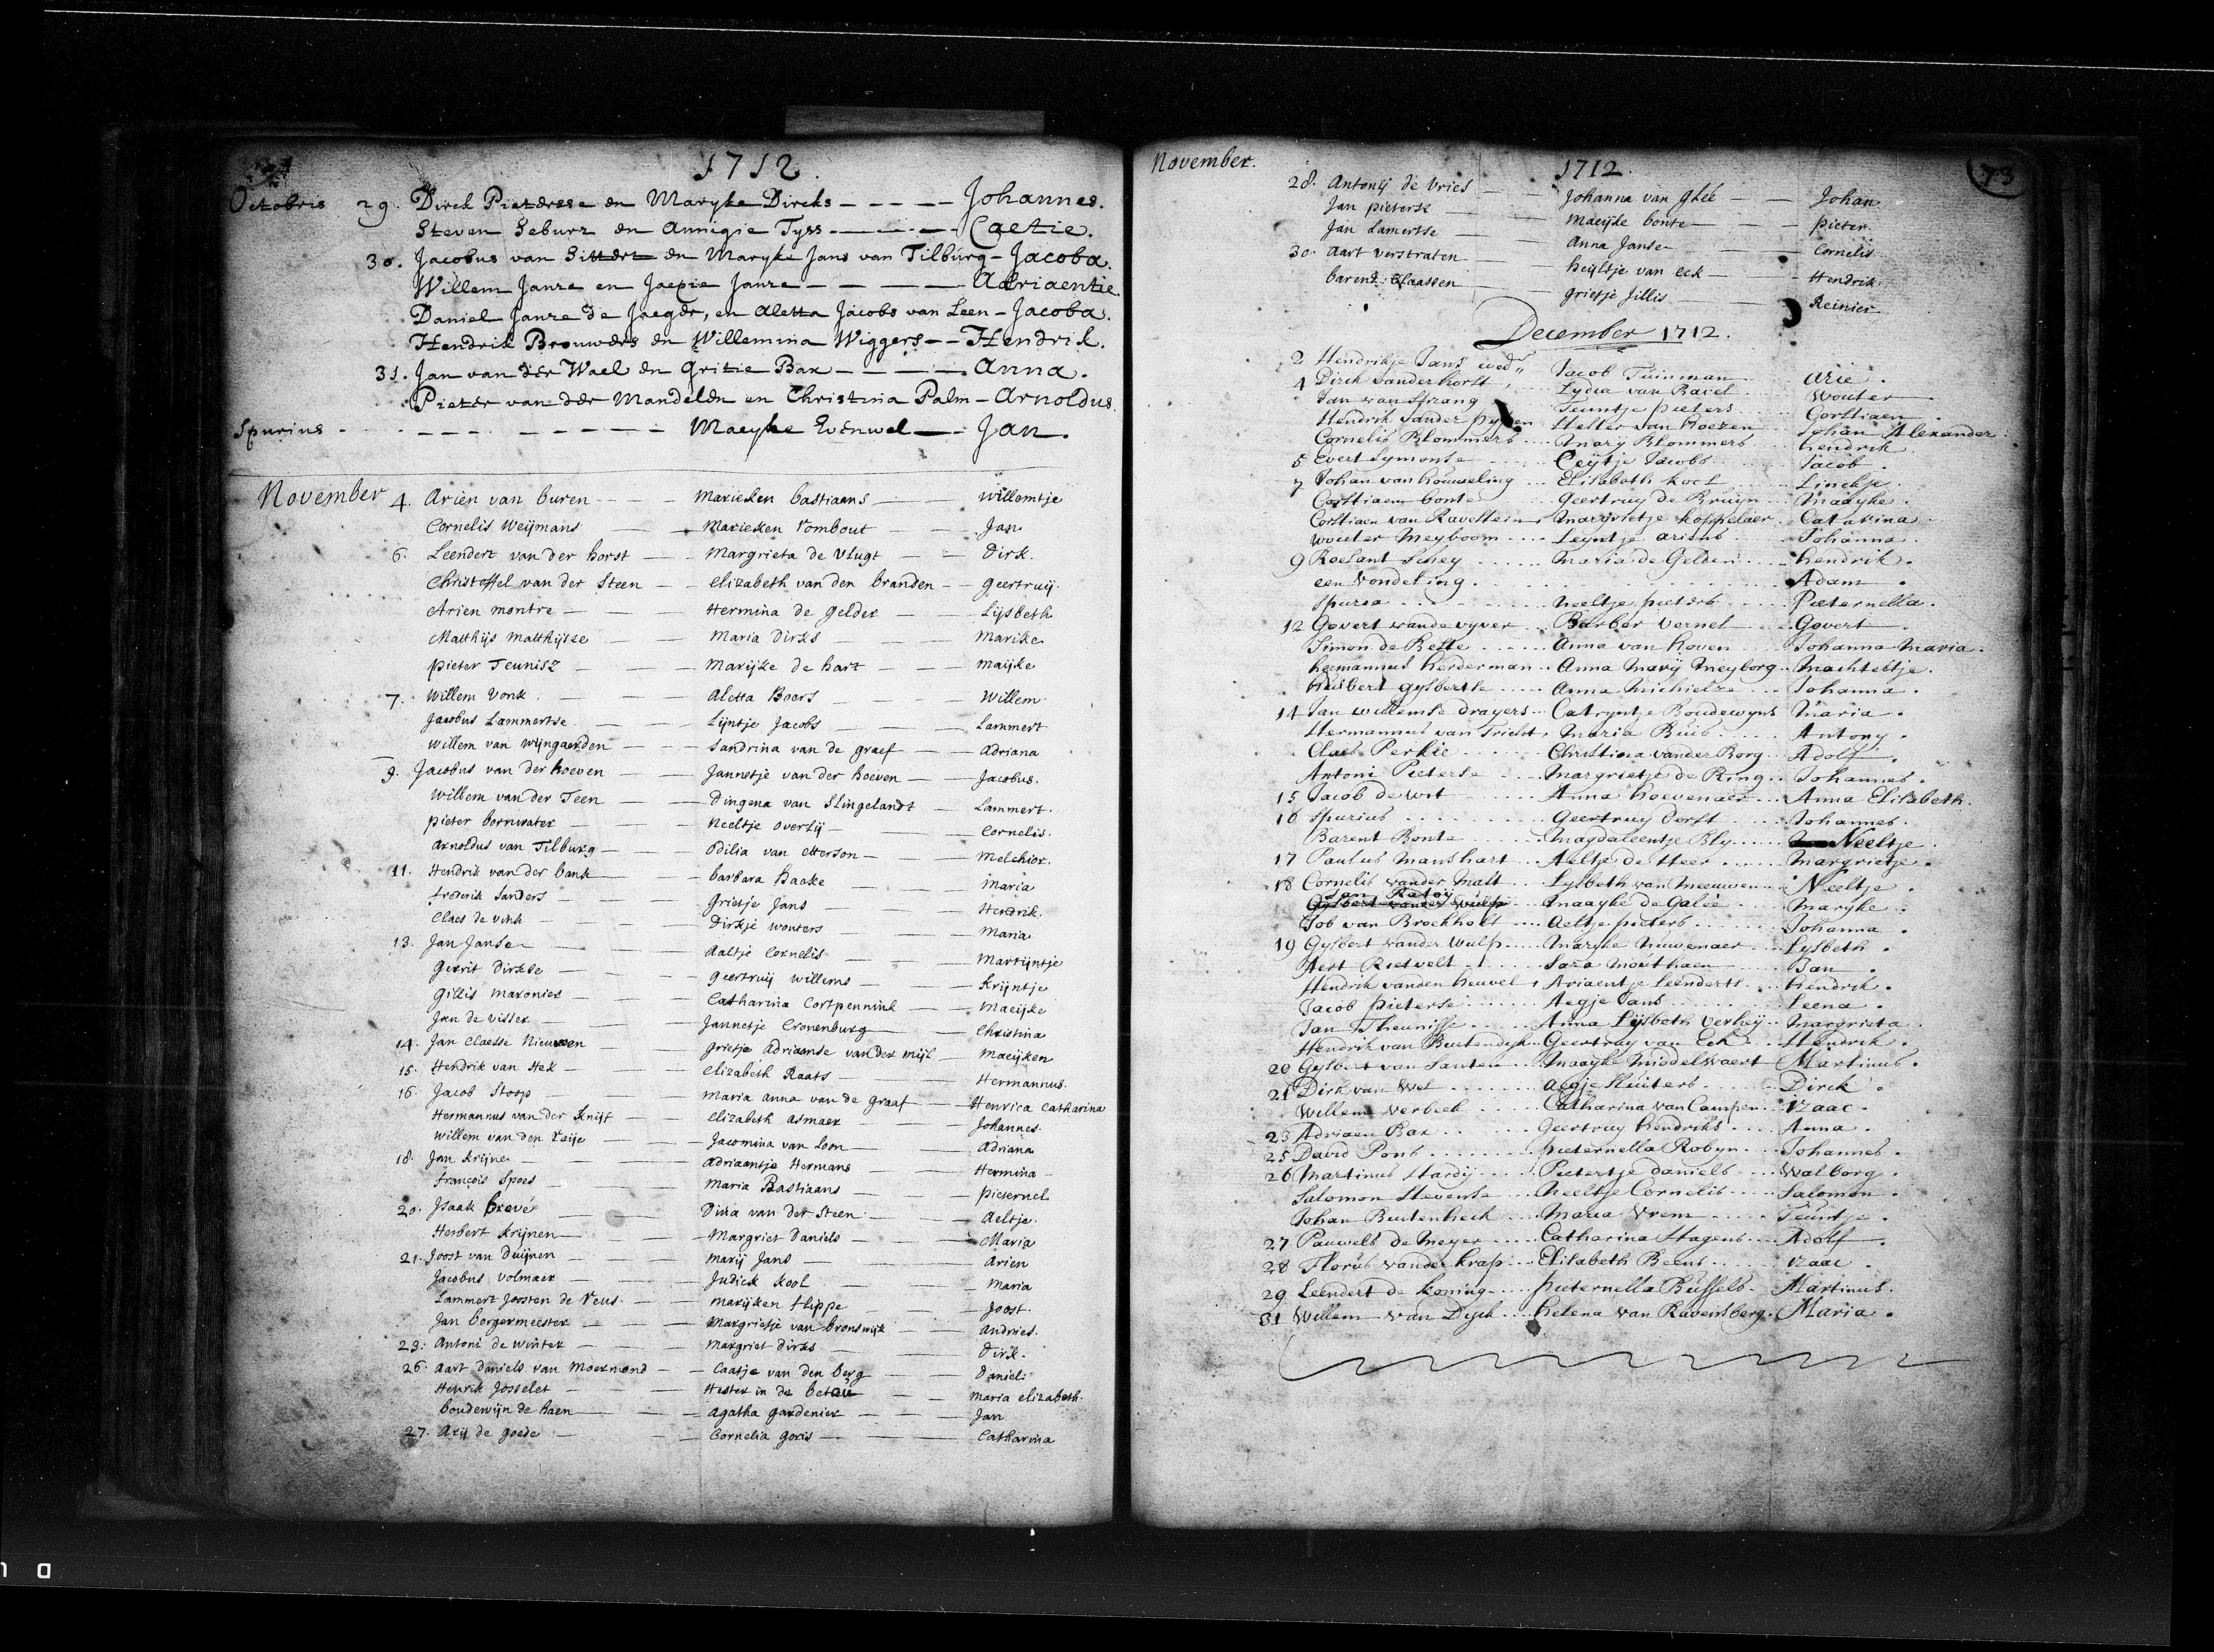 1712.
Octobris 29. Dirck Pieterse en Maryke Dircks - - - - Johannes.
Steven Seburz en Annigie Tyss - - - - Caetie.
30. Jacobus van Sittert en Maryke Jans van Tilburg - Jacoba.
Willem Janze en Jaepie Janze - - - - Adriaentie
Daniel Janze de Jaeger, en Aletta Jacobs van Leen - Jacoba.
Hendrik Brouwers en Willemina Wiggers - - Hendrik.
31. Jan van der Wael en Gritie Bax - - - - Anna.
Pieter van der Mandelen en Christina Palm - Arnoldus.
Spurius - - - - - - Maeyke Evenwel - Jan.
November 4. Arien van buren - - Marieken bastiaens - - willemtje
Cornelis Weijmans - - Marieken Rombout - - Jan
6. Leendert van der horst - - Margrieta de Vlugt - - Dirk.
Christoffel van der Steen - - elizabeth van den branden - - geertruij.
Arien montre - - Hermina de gelder - - Lijsbeth
Matthijs Matthijsze - - Maria Dirks - - Marike
pieter Teunisz - - Marijke de hart - - maijke
7. Willem Vonk. - - Aletta Boers - - Willem
Jacobus Lammertse - - Lijntje Jacobs - - Lammert
willem van wijngaerden - - Sandrina van de graef - - Adriana
9. Jacobus van der hoeven - - Jannetje van der hoeven - - Jacobus.
Willem van der Teen - - Dingena van Slingelandt - - Lammert.
pieter bornwater - - Neeltje overlij - - Cornelis.
Arnoldus van Tilburg - - Odilia van etterson - - Melchior.
11. Hendrik van der bank - - barbara haake - - Maria
frederik Sanders - - Grietje Jans - - Hendrik.
Claes de vink - - Dirkje wouters - - Maria
13. Jan Janse - - Aaltje Cornelis - - Martijntje
Gerrit Dirkse - - geertruij willems - - Krijntje
Gillis Maronier - - Catharina Cortpennink - - Maeijke
Jan de visser - - Jannetje Cronenburg - - Christina
14. Jan Claesse Nieuween - - grietje Adriaanse van der mijl - - Maeijken
15. Hendrik van Hek - - elizabeth Raats - - Hermannus.
16. Jacob Stoop - - maria anna van de graaf - - Henrica Catharina
Hermannus van der Knijf - - elizabeth asmaer - - Johannes.
Willem van den - - Jacomina van Loon - - Adriana
18. Jan Krijne - - Adriaantje Hermans - - Hermina
françois Spoes - - Maria Bastiaans - - pieternel
20. Isaak Crevé - - Dina van der Steen - - Aeltje.
Herbert Krijnen - - Margriet Daniels - - Maria
21. Joost van Duijnen - - marij Jans - - Arien
Jacobus Volmaer - - Judick Kool - - Maria
Lammert Joosten de Reus - - marijken flippe - - Joost.
Jan borgermeester - - Margrietje van bronswijk - - Andries.
23. Antoni de winter - - margriet Dirks - - Dirk.
26. Aart Daniels van Moermond - - Caatje van den berg - - Daniel.
Henrik Josselet - - Hester in de betou - - maria elizabeth.
boudewijn de haen - - agatha gardenier - - Jan
27. Arij de goede - - Cornelia goris - - Catharina
73
November. 1712.
28. Antonij de Vries - - Johanna van glee - - Johan
Jan pieterse - - Maeijke bonte - - pieter.
Jan Lamertse - - Anna Janse - - Cornelis
30. Aart verstraten - - heijltje van eck - - Hendrik.
barend Claassen - - grietje Jillis - - Reinier
December 1712.
2 Hendrikje Jans wedr Jacob Tuinman Arie.
4 Dirck vander horst, Lydia van Bavel Wouter
Jan van Sprang Teuntje pieters Gorstiaen.
Hendrik vander pypen Hester van hoezen Johan Alexander.
Cornelis Blommers Mary Blommers hendrik
5 Evert Symonse Ceijtje Jacobs Jacob.
7 Johan van houweling Elisabeth kock Linckje.
Corstiaen bonte Geertruy de Bruijn Maayke.
Corstiaen van Ravestein, Margrietje koppelaer Catarina.
wouter Meyboom Leyntje ariens Johanna.
9 Roelant Schey Maria de Gelder hendrik.
een vondeling. Adam.
Spurea neeltje pieters Pieternella.
12 Govert vande vyver Barber vernel Govert.
Simon de Beste Anna van hoven Johanna Maria.
hermannus herderman Anna Marij Meyborg Machteltje.
huibert gysbertse Anna Michielze Johanna.
14 Jan willemse drayers Catryntje Boudewyns Maria.
Hermannus van Tricht, Maria Buis Antony.
Claes Perkie Christina vander Borg Adolf.
Antoni Pieterse Margrietje de Ring Johannes.
15 Jacob de wit Anna hoevenaer Anna Elisabeth.
16 Spurius Geertruy derst Johannes.
Barent Bonte Magdaleentje Bly Neeltje.
17 Paulus Manshart Aeltje de Heer Margrietje.
18 Cornelis vander Malt Lysbeth van Meeuwen Neeltje.
Jan Ratoij
Gysbert vander wulp Maayke de Galée Maryke.
Job van Brockholt Aeltje pieters Johanna.
19 Gysbert vander Wulp Maryke nieuwenaer Lysbeth.
Aert Rietvelt Sara Mouthaen Jan.
Hendrik vanden heuvel, Ariaentje Leenderts hendrik.
Jacob pieterse Aegje Jans Leena.
Jan Theunisse Anna Lijsbeth Verheij Margrieta.
Hendrik van Buitendyk Geertruy van Eck Hendrik.
20 Gysbert van Santen Maayke Middelwaert Martinus.
21 Dirk van Wel aegje sluiters Dirck.
Willem verbeek Catharina van Campen Izaac.
23 Adriaen Bax Geertruy hendriks Anna.
25 David Pons pieternella Robyn Johannes.
26 Martinus Hardij Pietertje daniels Walborg.
Salomon Stevense Neeltje Cornelis Salomon.
Johan Buitenheck Maria Vrem Teuntje.
27 Pauwels de Meyer Catharina Hagens Adolf.
28 Florus vander krap Elisabeth Beens Izaac.
29 Leendert de koning pieternella Bussels Martinus.
31 Willem van Dyck helena van Ravensberg Maria.